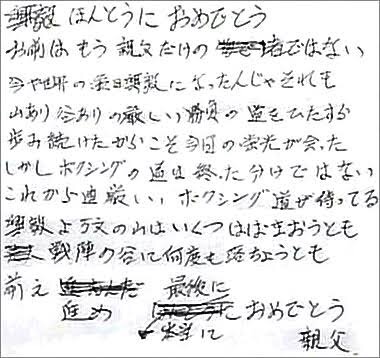 無敵 ほんとうに おめでとう
お前は もう 親父だけの 者ではない
今や世界の 粟田無敵に なったんじゃ それも
山あり谷ありの厳しい勝負の道をひたすら
歩み続けたからこそ今日の栄光が会った
しかしボクシングの道は終った分けではない
これから道厳しいボクシング道が待ってる
無敵よ 万丈の山はいくつはばもおうとも
戦陣の谷に何度も落ちようとも
前え 最後に
進め おめでとう
本当に
親父